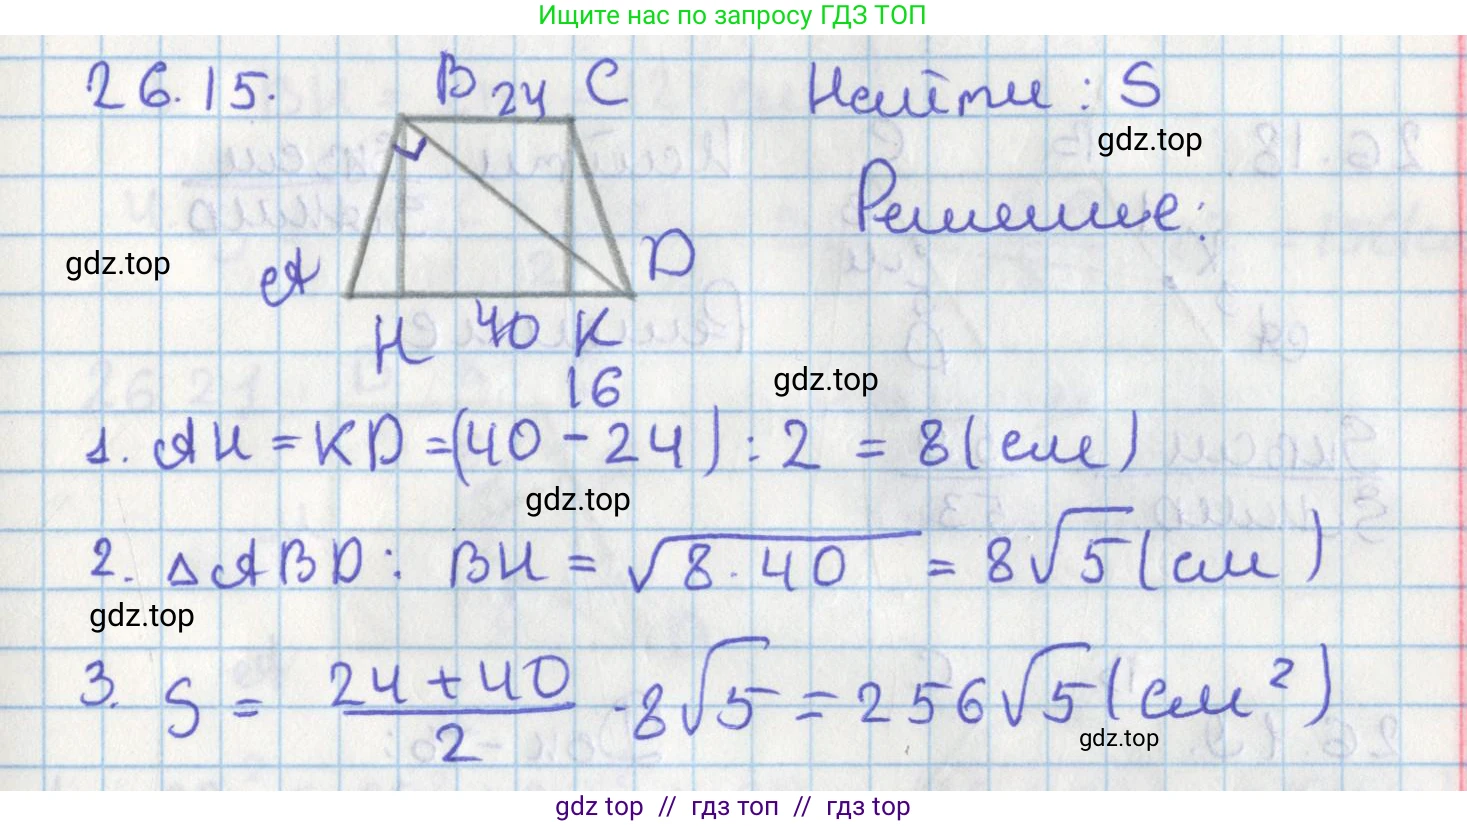 Ищите нас по запросу ГДЗ ТОП
26.15.
B 24 C
Найти : S
gdz.top
Решение:
gdz.top
A
D
H 40 K
16
gdz.top
1. AH = KD = (40 - 24) : 2 = 8 (см)
gdz.top
2. △ABD: BH = √8·40 = 8√5 (см)
gdz.top
3. S = 24 + 40 / 2 · 8√5 = 256√5 (см²)
gdz.top
gdz top // гдз топ // гдз top